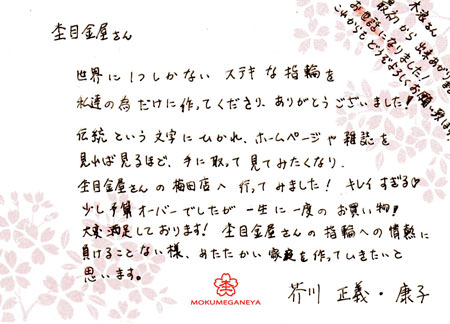 杢目金屋さん
世界に1つしかない ステキな指輪を
私達の為だけに作ってくださり、ありがとうございました!
伝統という文字にひかれ、ホームページや雑誌を
見れば見るほど、手に取って見てみたくなり、
杢目金屋さんの梅田店へ行ってみました! キレイすぎる♡
少し予算オーバーでしたが一生に一度のお買い物!
大変満足しております! 杢目金屋さんの指輪への情熱に
負けることない様、あたたかい家庭を作っていきたいと
思います。
芥川 正義・康子
木衣さん
最初から出来あがりまで
お世話になりました!
これからもどうぞよろしくお願い致します!
MOKUMEGANEYA